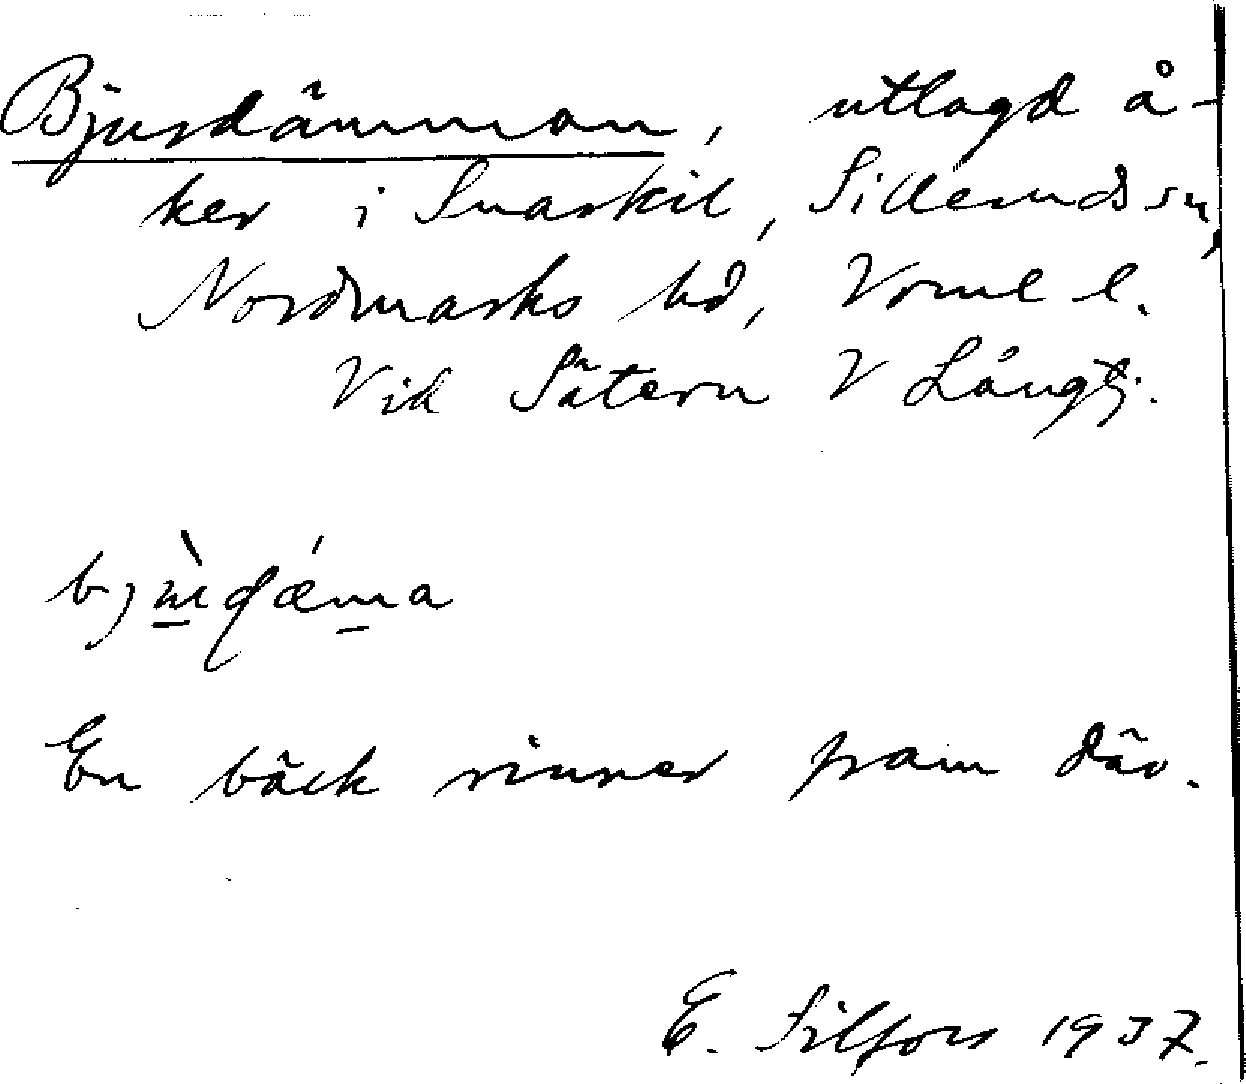 Bjurdämman, utlagd å-
ker i Snarkil, Silleruds sn,
Nordmarks hd, Vrml l.
Vid Sätern V Långtj.
En bäck rinner fram där.
E. Silfors 1937.